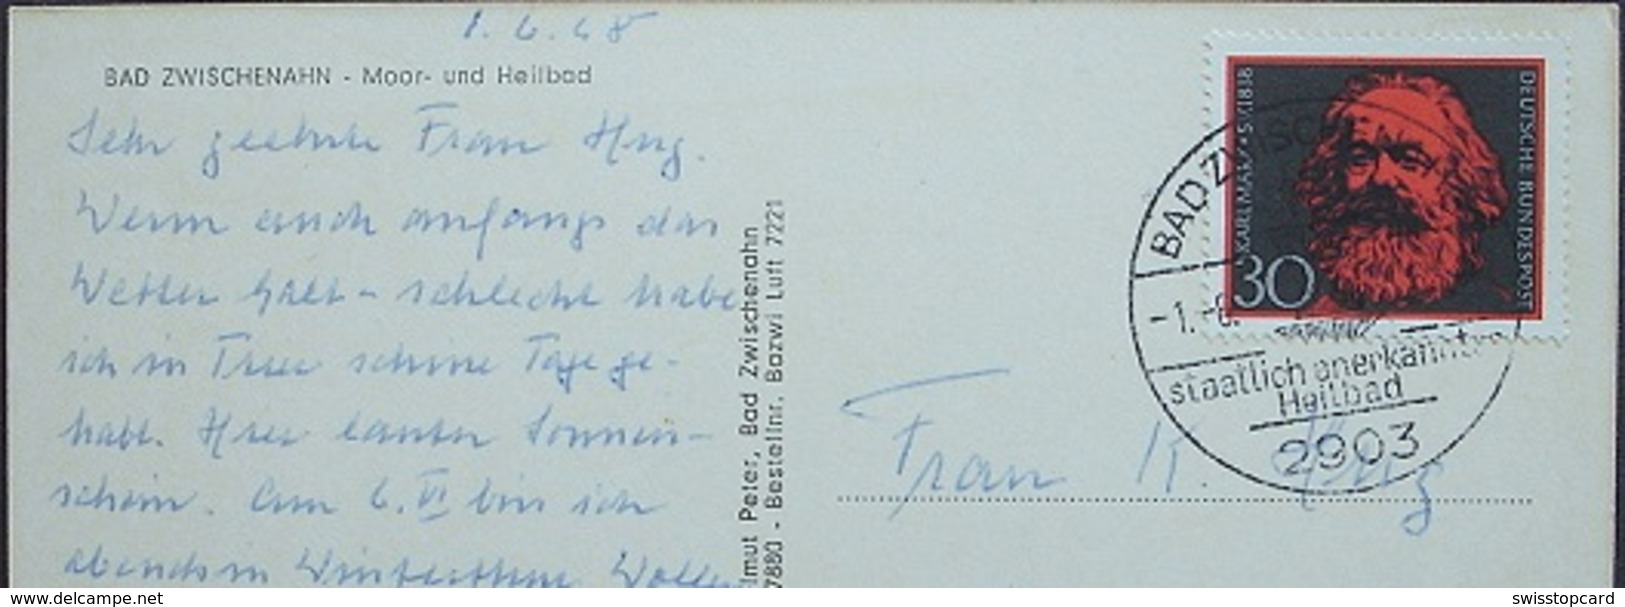 1. 6. 68
BAD ZWISCHENAHN - Moor- und Heilbad
Sehr geehrte Frau Hug.
Wenn auch anfangs das
Wetter halt - schlecht habe
ich in Trier schöne Tage ge-
habt. Hier lauter Sonnen-
schein. Am 6. VI bin ich
abends in Winterthur
lmut Peter, Bad Zwischenahn
7880 - Bestellnr. Bazwi Luft 7221
KARL MARX • 5.V.1818
DEUTSCHE BUNDESPOST
30
BAD ZWISCHEN
-1.-6.
staatlich anerkannte
Heilbad
2903
Frau K. Hug
delcampe.net
swisstopcard